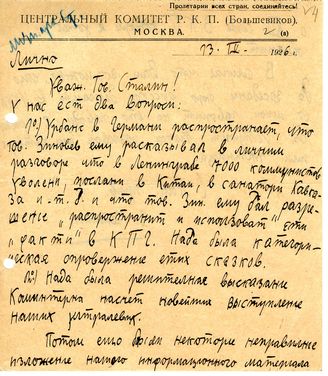 Пролетарии всех стран, соединяйтесь!
ЦЕНТРАЛЬНЫЙ КОМИТЕТ Р. К. П. (Большевиков).
МОСКВА.
13. III. 1926 г.
Лично
Уваж. Тов. Сталин!
У нас ест два вопроси:
1º) Урбанс в Германи распространяет, что
тов. Зиновьев ему рассказывал в личним
разговоре что в Ленинграде 7000 коммунистов
уволени, послани в Китаи, в санатори Кавка-
за и т. д. и что тов. Зин. ему дал разри-
шение „распространит и использоват" эти
„факти" в К П Г. Нада била категори-
ческая опровержение етих сказков.
2º) Нада била решителная висказание
Коминтерна насчет новейших виступление
наших ултралевих.
Потом ещо били некотори неправилние
изложение нашого информационного материала